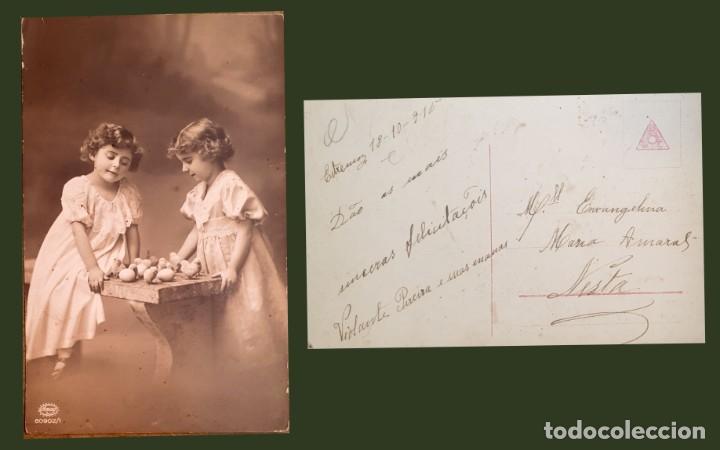 60902/1
Estremoz 18-10-916
Dão as mais
sinceras felicitações
Violante Pereira e suas manas
M.ell Evangelina
Maria Amaral
Nesta
todocoleccion